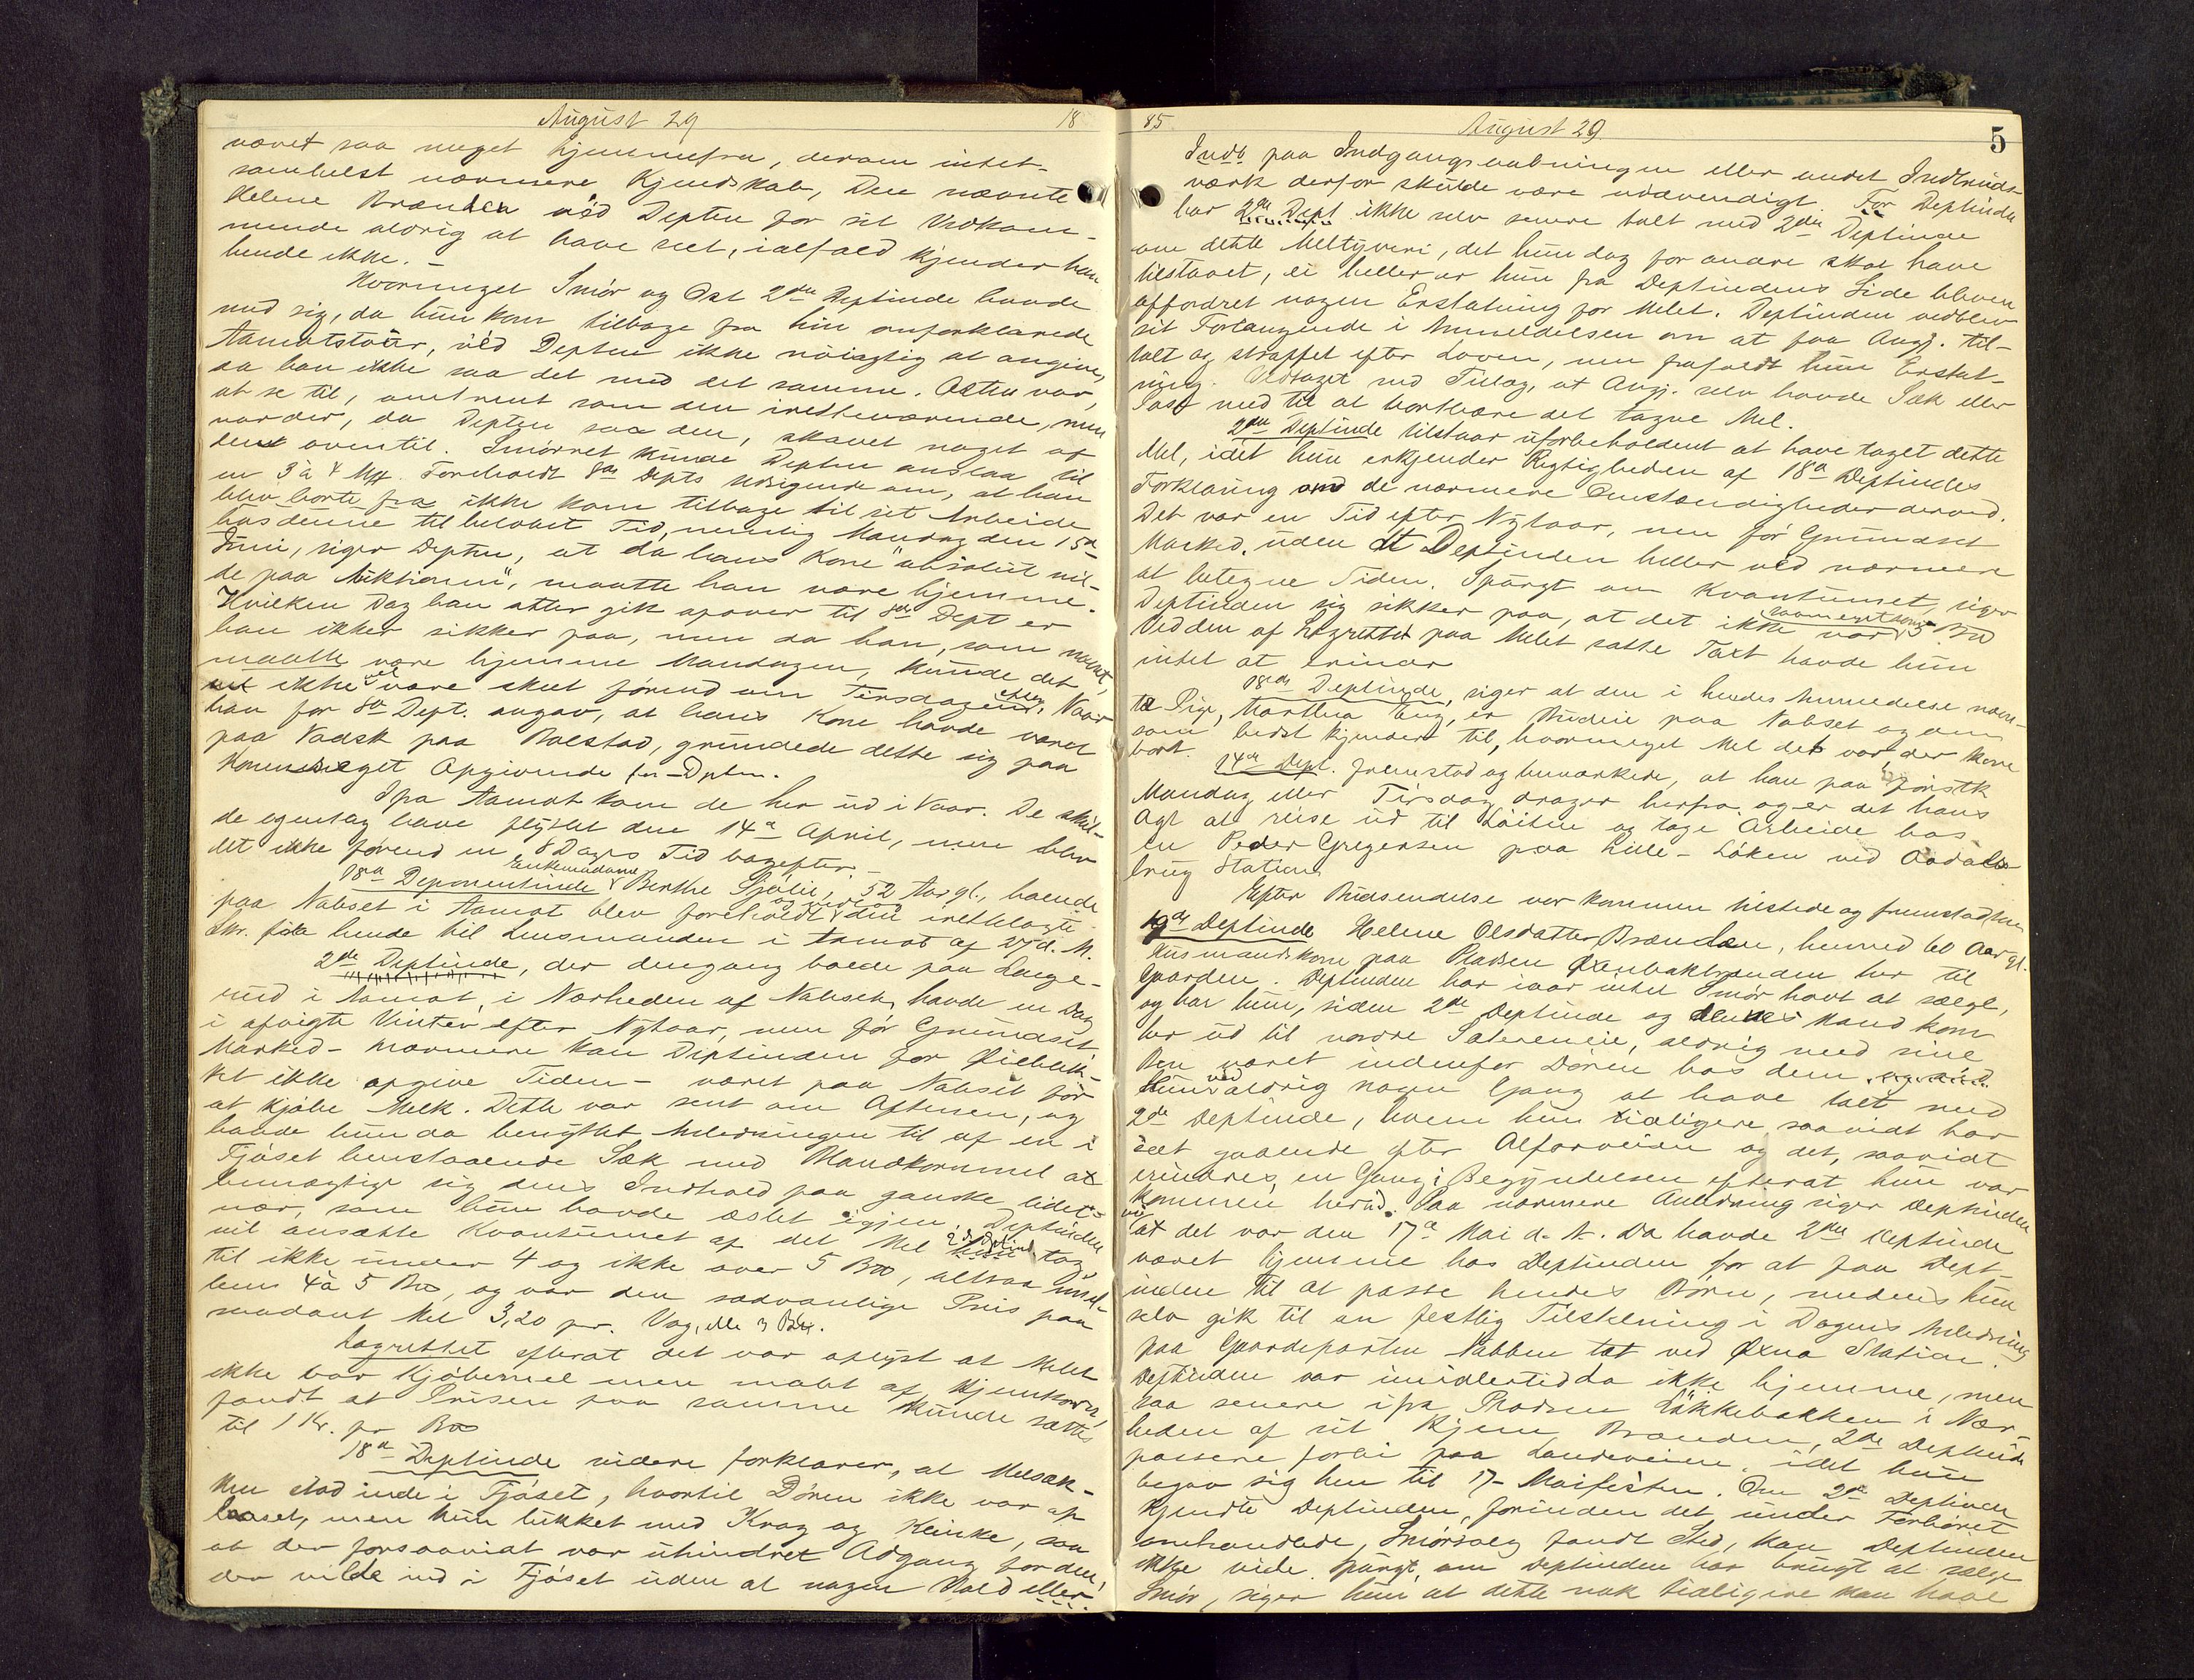 August 29 18
været saa meget hjemmefra, derom intet-
somhelst nærmere Kjendskab, Den nævnte
Helene Brænden véd Depten for sit Vedkom-
mende aldrig at have seet, ialfald kjender han
hende ikke. –
Hvormeget Smør og Ost 2den Deptinde havde
med sig, da hun kom tilbage fra hin omforklarede
Aamotstour, véd Depten ikke nöiagtig at angive,
da han ikke saa det med det samme. Osten var,
at se til, omtrent som den iretteværende, men
var der, da Depten saa den, skavet noget af
den oventil. Smörret kunde Depten anslaa til
en 3 à 4 Mkr. Foreholdt 8de Depts Udsigende om, at han
blev borte fra ikke kom tilbage til sit Arbeide
hos denne til belovet Tid, nemlig Mandag den 15de
Juni, siger Depten, at da hans Kone "absolut vil-
de paa Auktionen", maatte han være hjemme.
Hvilken Dag han atter gik apaver til 8de Dept er
han ikke sikker paa, men da han, som nævnt,
maatte være hjemme Mandagen, kunde det
ikke vel være skeet førend om Tirsdagen. Naar
han for 8de Dept. angav, at hans Kone havde været
paa Vadsk paa Rolstad, grundede dette sig paa
Konens eget Opgivende for Dpten.
Ifra Aamot kom de her ud i Vaar. De skul-
de egentlig have flyttet den 14de April, men blev
det ikke förend en 8 Dages Tid bagefter.
18de Deponentinde Enkemadame Berthe Sjølie, 52 Aar gl., boende
paa Nabset i Aamot blev foreholdt den iretlagte
Skr. fra hende til Lensmanden i Aamot af 27 d. M.
2de Deptinde, der dengang boede paa Lange-
rud i Aamot, i Nærheden af Nabset, havde en Dag
i afvigte Vinter efter Nytaar, men før Grundset
Marked – nærmere kan Deptinden for Øieblik-
ket ikke opgive Tiden – været paa Nabset for
at kjöbe Melk. Dette var sent om Aftenen, og
havde hun da benyttet Anledningen til af en i
Fjöset henstaaende Sæk med Blandkornmel at
bemægtige sig dens Indhold paa ganske lidet
nær, som hun havde øslet igjen. Deptinden
vil ansætte Kvantumet af det Mel 2de Deptinde tog
til ikke under 4 og ikke over 5 Bpd, altsaa imel-
lem 4 à 5 Bpd, og var den sædvanlige Pris paa
saadant Mel 3,20 pr. Vog, elle 3 Bpd.
Lagrettet efterat det var oplyst at Melet
ikke var Kjöbemel men malet af Hjemkorn,
fandt at Prisen paa samme kunde sættes
til 1 Kr. pr Bpd
18de Deptinde videre forklarer, at Melsæk-
ken stod inde i Fjöset, hvortil Dören ikke var af
laaset, men kun lukket med Krog og Keinke, saa
at der forsaavidt var uhindret Adgang for den,
der vilde ind i Fjöset uden at nogen Vold eller
85 August 29 5
Indb paa Indgangsaabningen eller andet Indbruds-
værk derfor skulde være nödvendigt. For Deptinden
har 2den Dept ikke selv senere talt med 2den Deptinde
om dette Meltyveri, det hun dog for andre skal have
tilstaaet, ei heller er hun fra Deptindens Side bleven
affordret nogen Erstatning for Melet. Deptinden vedblev
sit Forlangende i Anmeldelsen om at faa Angj. til-
talt og straffet efter Loven, men frafaldt hun Erstat-
ning. Vedtaget med Tillæg, at Angj. selv havde Sæk eller
Pose med til at bortbære det tagne Mel.
2den Deptinde tilstaar uforbeholdent at have taget dette
Mel, idet hun erkjender Rigtigheden af 18de Deptindes
Forklaring om de nærmere Omstændigheder derved.
Det var en Tid efter Nytaar, men för Grundset
Marked, uden at Deptinden heller véd nærmere
at betegne Tiden. Spurgt om Kvantumet, siger
Deptinden sig sikker paa, at det ikke var saameget som 5 Bpd
Ved den af Lagrettet paa Melet satte Taxt havde hun
intet at erindre
18de Deptinde, siger at den i hendes Anmeldelse nævn-
te Pige, Marthea Eng, er Budeie paa Nabset og den
som bedst kjender til, hvormeget Mel det var, der kom
bort.
14de Dept. fremstod og bemærkede, at han paa förstk
Mandag eller Tirsdag drager herfra og er det hans
Agt at reise ud til Löiten og tage Arbeide hos
en Peder Gregersen paa Lille-Löken ved Aadals-
brug Station
Efter Budsendelse var kommen tilstede og fremstod hun
19de Deptinde Helene Olsdatter Brænden, henved 60 Aar gl.
Husmandskone paa Pladsen Øxnbakbrænden her til
Gaarden. Deptinden har iaar intet Smör havt at sælge,
og har hun, siden 2de Deptinde og dennes Mand kom
her ud til nordre Sætereneie, aldrig med sine
Ben været indenfor Dören hos dem
Hun véd aldrig nogen Gang at have talt med
2de Deptinde, hvem hun tidligere saavidt har
seet gaaende efter Alfarveien og det, saavidt
erindres, en Gang i Begyndelsen efterat hun var
kommen herud. Paa nærmere Anledning siger Deptinden
at det var den 17de Mai d. A. Da havde 2den Deptinde
været hjemme hos Deptinden for at faa Dept-
inden til at passe hendes Börn, medens hun
selv gik til en festlig Tilstelning i Dagens Anledning
paa Gaardeparten Nabben tæt ved Øxna Station.
Deptinden var imidlertid da ikke hjemme, men
saa senere ifra Pladsen Løkkebakken i Nær-
heden af sit Hjem Brænden, 2de Deptinde
passere forbi paa Landeveien, idet hun
begav sig hen til 17-Maifesten. Om 2de Deptinde
kjendte Deptinden, förinden det under Forhöret
omhandlede, Smörsalg fandt Sted, kan Deptinden
ikke vide. Spurgt, om Deptinden har brugt at sælge
Smör, siger hun at dette nok tidligere kan have